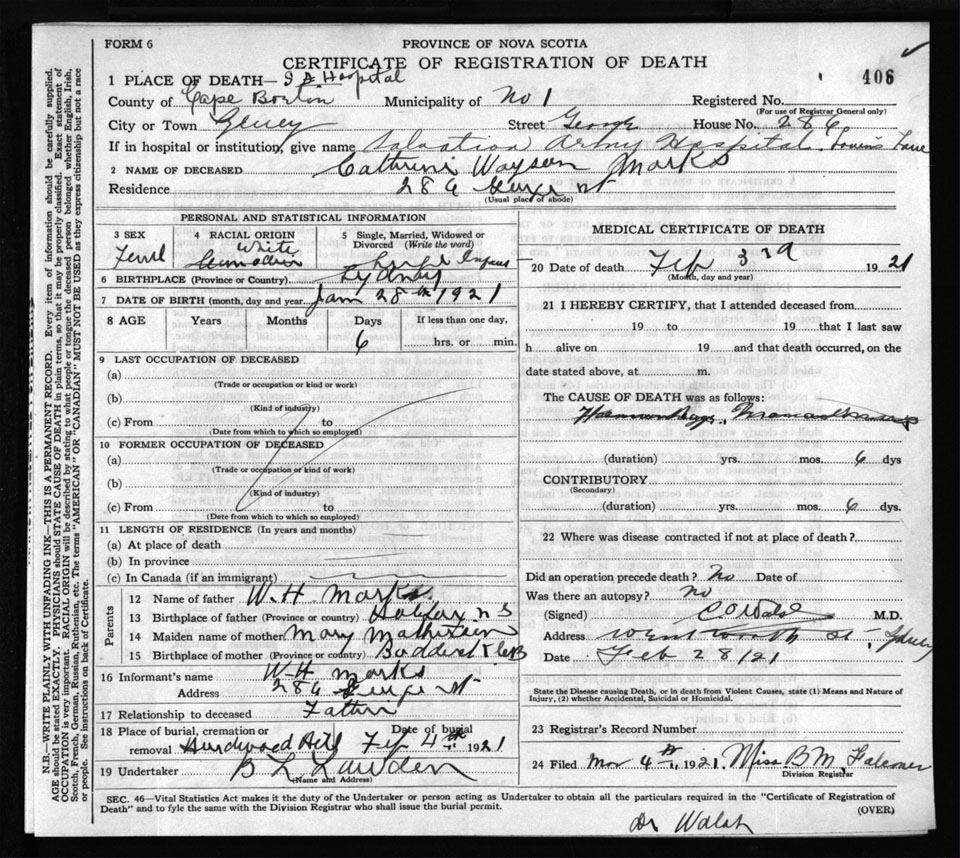 FORM 6
PROVINCE OF NOVA SCOTIA
CERTIFICATE OF REGISTRATION OF DEATH
406
1 PLACE OF DEATH— S A Hospital
County of Cape Breton Municipality of No 1 Registered No.
(For use of Registrar General only)
City or Town Street George House No. 286
If in hospital or institution, give name Salvation Army Hospital
2 NAME OF DECEASED Cathrine Wayson Marks
Residence 286 George St
(Usual place of abode)
PERSONAL AND STATISTICAL INFORMATION
3 SEX
4 RACIAL ORIGIN White
5 Single, Married, Widowed or
Divorced (Write the word)
6 BIRTHPLACE (Province or Country) Sydney
7 DATE OF BIRTH (month, day and year) Jan 28th 1921
8 AGE Years Months Days If less than one day,
6 hrs. or min.
9 LAST OCCUPATION OF DECEASED
(a)
(Trade or occupation or kind or work)
(b)
(Kind of industry)
(c) From to
(Date from which to which so employed)
10 FORMER OCCUPATION OF DECEASED
(a)
(Trade or occupation or kind of work)
(b)
(Kind of industry)
(c) From to
(Date from which to which so employed)
11 LENGTH OF RESIDENCE (In years and months)
(a) At place of death
(b) In province
(c) In Canada (if an immigrant)
Parents
12 Name of father W.H Marks
13 Birthplace of father (Province or country) Halifax N S
14 Maiden name of mother Mary
15 Birthplace of mother (Province or country)
16 Informant's name W H Marks
Address 286 George St
17 Relationship to deceased Father
18 Place of burial, cremation or Date of burial
removal Hardwood Hill Feb 4th 1921
19 Undertaker B L
(Name and Address)
MEDICAL CERTIFICATE OF DEATH
20 Date of death Feb 3rd 1921
(Month, day and year)
21 I HEREBY CERTIFY, that I attended deceased from
19 to 19 that I last saw
h alive on 19 and that death occurred, on the
date stated above, at m.
The CAUSE OF DEATH was as follows:
(duration) yrs. mos. 6 dys
CONTRIBUTORY
(Secondary)
(duration) yrs. mos. 6 dys.
22 Where was disease contracted if not at place of death?
Did an operation precede death? No Date of
Was there an autopsy? No
(Signed) M.D.
Address Wentworth St. Sydney
Date Feb 28/21
State the Disease causing Death, or in death from Violent Causes, state (1) Means and Nature of
Injury, (2) whether Accidental, Suicidal or Homicidal.
23 Registrar's Record Number
24 Filed Mar 4th, 1921 Miss B M. Falconer
Division Registrar
SEC. 46—Vital Statistics Act makes it the duty of the Undertaker or person acting as Undertaker to obtain all the particulars required in the "Certificate of Registration of
Death" and to fyle the same with the Division Registrar who shall issue the burial permit.
(OVER)
Dr Walsh
N.B.—WRITE PLAINLY WITH UNFADING INK—THIS IS A PERMANENT RECORD. Every item of information should be carefully supplied.
AGE should be stated EXACTLY. PHYSICIANS should STATE CAUSE OF DEATH in plain terms, so that it may be properly classified. Exact statement of
OCCUPATION is very important. RACIAL ORIGIN will be described by stating to what people or tongue the deceased person belonged whether English, Irish,
Scotch, French, German, Russian, Ruthenian, etc. The terms "AMERICAN" OR "CANADIAN" MUST NOT BE USED as they express citizenship but not a race
or people. See instructions on back of Certificate.